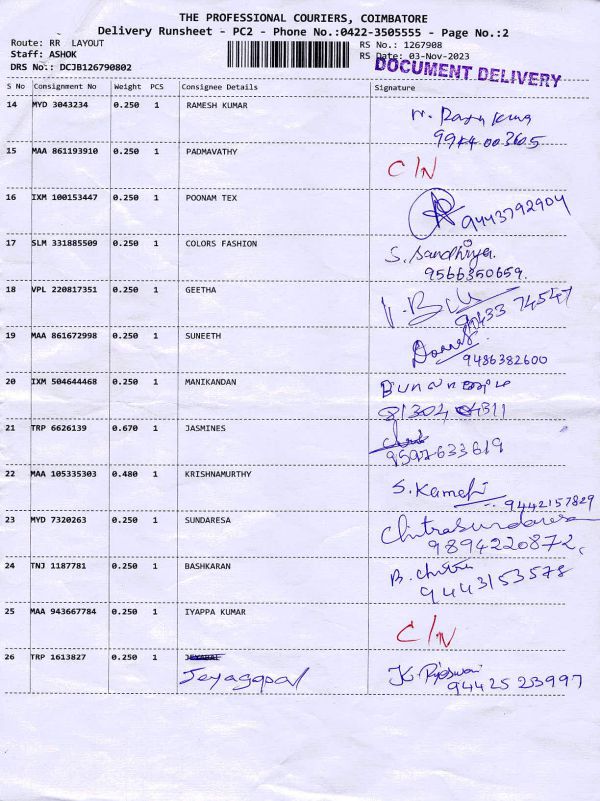 THE PROFESSIONAL COURIERS, COIMBATORE
Delivery Runsheet - PC2 - Phone No.:0422-3505555 - Page No.:2
Route: RR LAYOUT
RS No.: 1267908
Staff: ASHOK
RS Date: 03-Nov-2023
DRS No.: DCJB126790802
DOCUMENT DELIVERY
S No Consignment No Weight PCS Consignee Details Signature
14 MYD 3043234 0.250 1 RAMESH KUMAR
15 MAA 861193910 0.250 1 PADMAVATHY C/N
16 IXM 100153447 0.250 1 POONAM TEX
9443792904
17 SLM 331885509 0.250 1 COLORS FASHION S. Sandhiya.
9566350659.
18 VPL 220817351 0.250 1 GEETHA
74547
19 MAA 861672998 0.250 1 SUNEETH
9486382600
20 IXM 504644468 0.250 1 MANIKANDAN
21 TRP 6626139 0.670 1 JASMINES
9597633619
22 MAA 105335303 0.480 1 KRISHNAMURTHY S.
9442157829
23 MYD 7320263 0.250 1 SUNDARESA Chitrasundaresa
9894220872
24 TNJ 1187781 0.250 1 BASHKARAN B. Chitra
9443153578
25 MAA 943667784 0.250 1 IYAPPA KUMAR C/N
26 TRP 1613827 0.250 1
Jeyagopal K.
9442523997